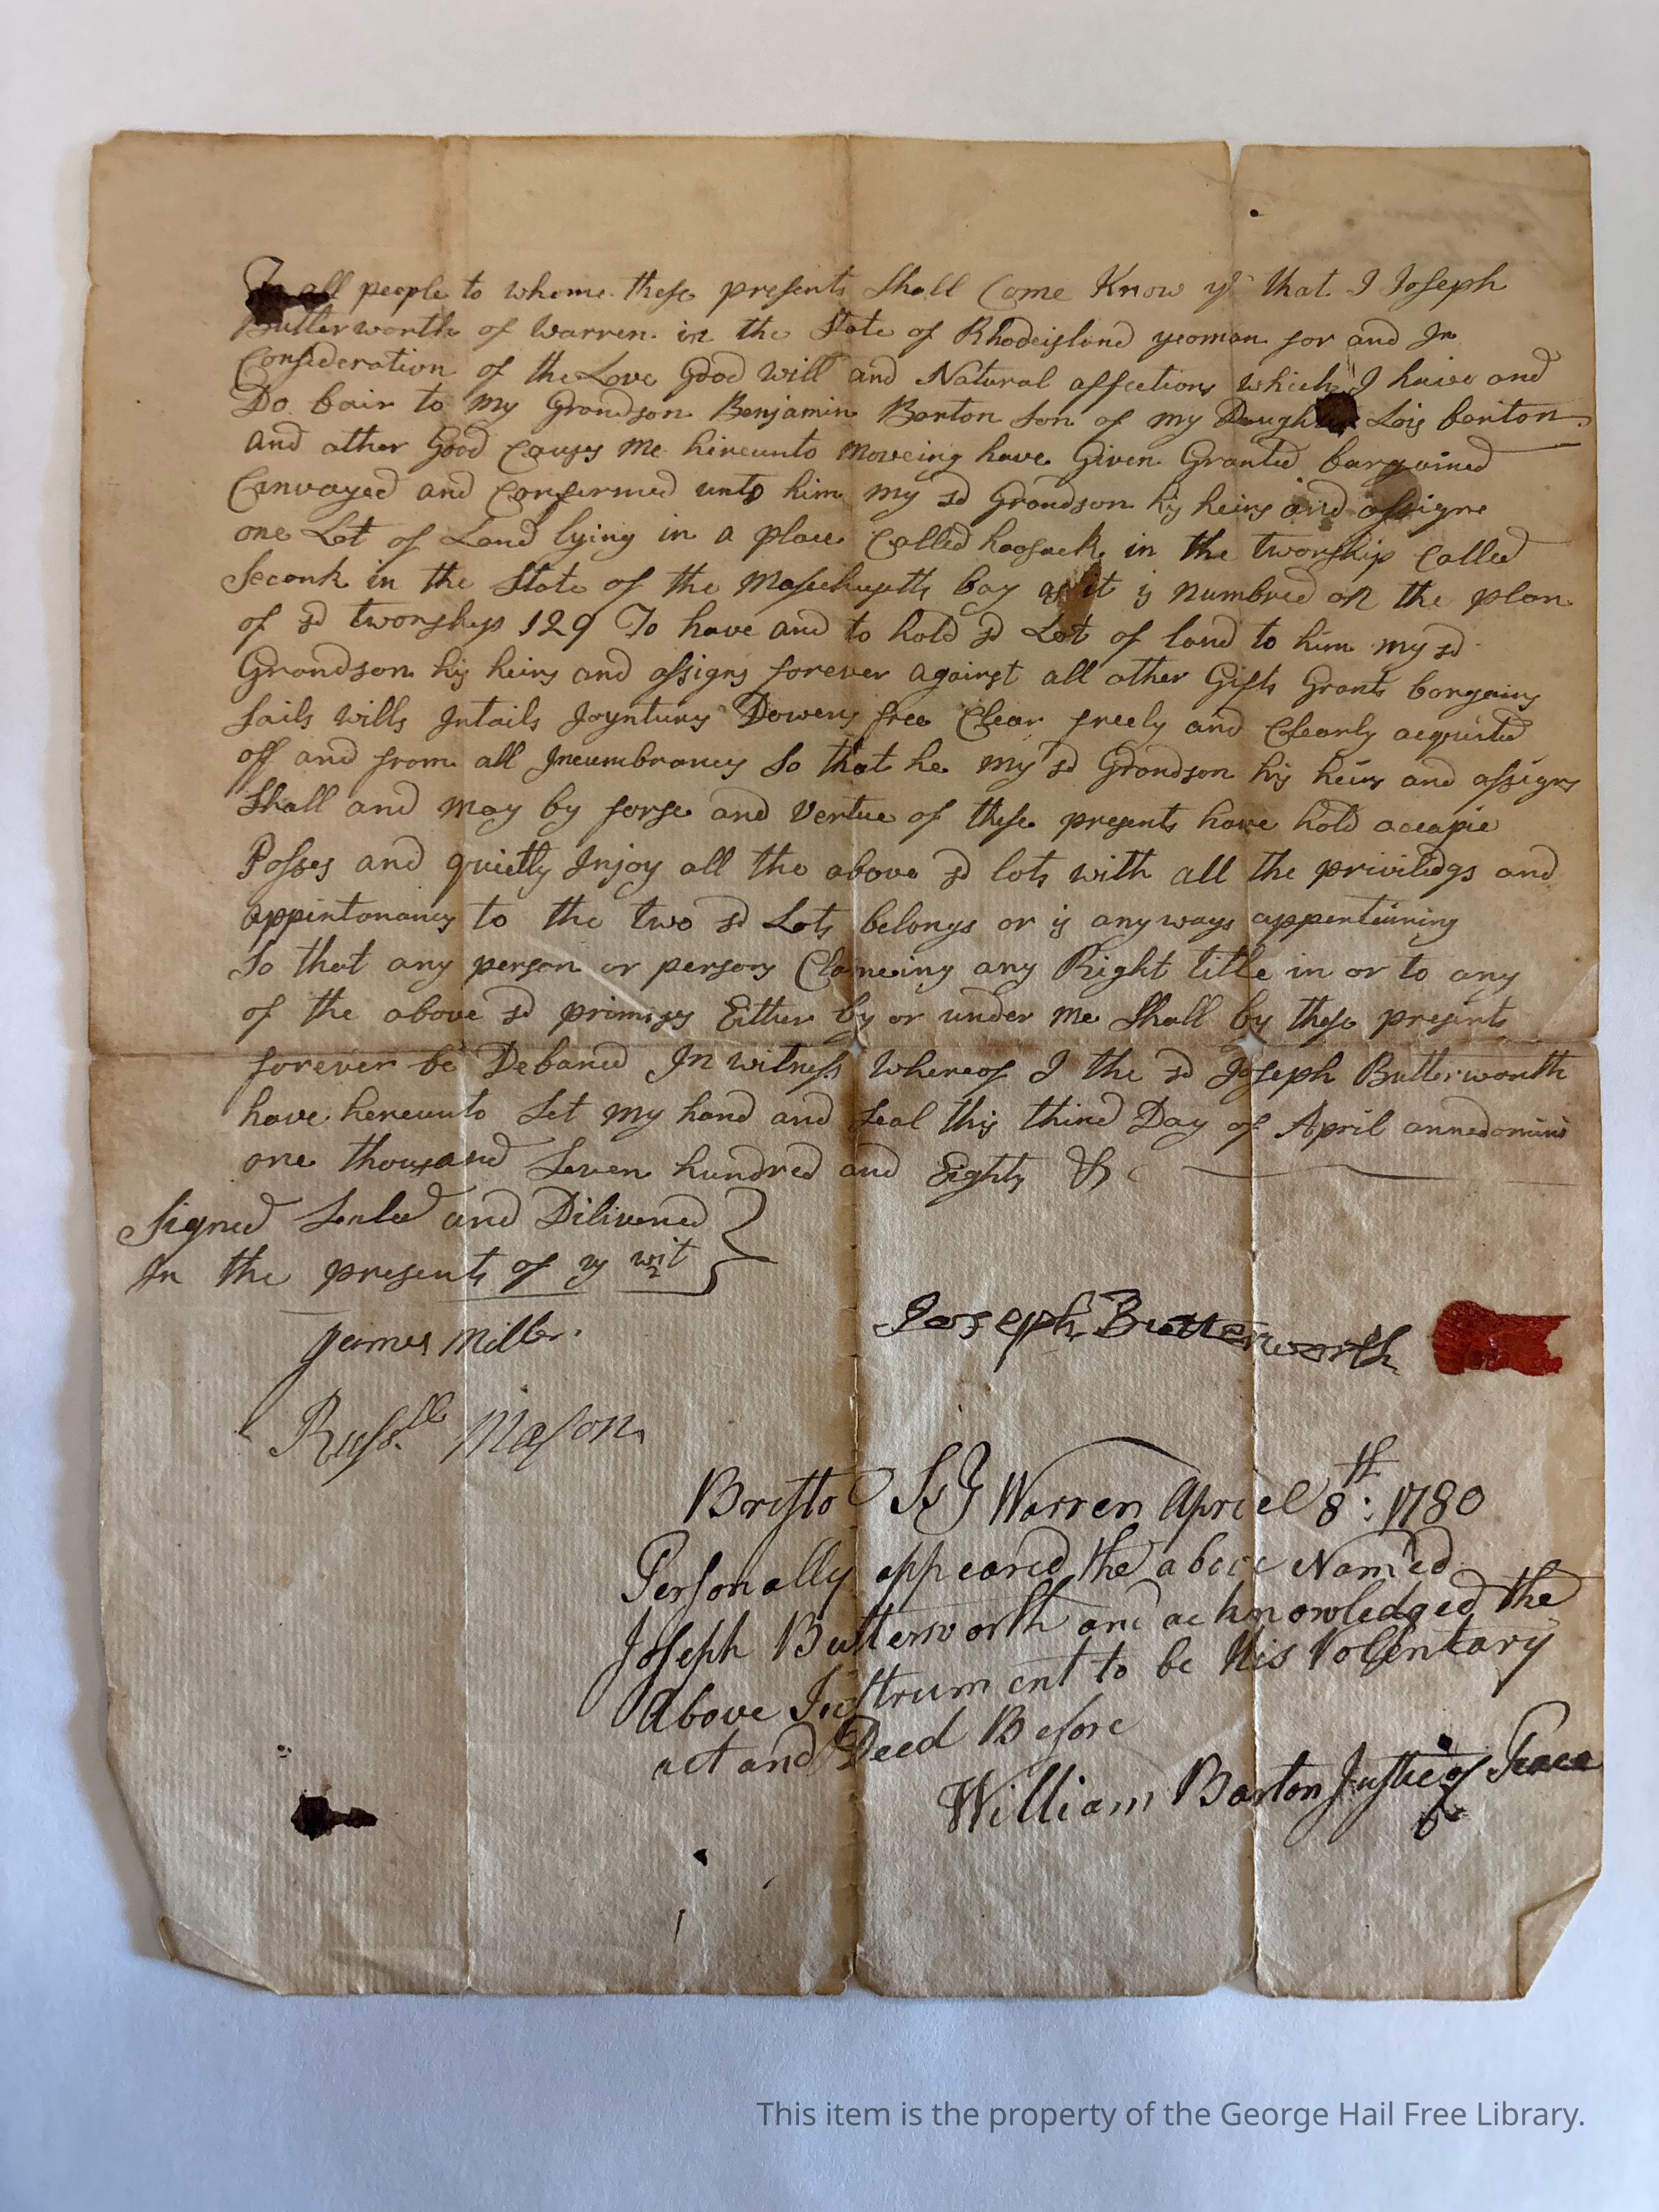 To all people to whome these presents Shall Come Know ye that I Joseph
Butterworth of Warren in the State of Rhodeisland yeoman for and In
Consideration of the Love Good will and Natural affections which I haive and
Do bair to my Grandson Benjamin Barton Son of my Daughter Lois barton
and other Good Causes me hireunto moveing have Given Granted bargained
Convayed and Confirmed unto him my sd Grandson his heirs and assigns
one Lot of Land lying in a place Called hoosuck in the twonship Called
Seconk in the State of the Masechusetts bay as it is numbred on the plan
of sd twonships 129 To have and to hold sd Lot of land to him my sd
Grandson his heirs and assigns forever against all other Gifts Grants bargains
Sails wills Intails Joynturs Dowers free Clear freely and Clearly acquited
off and from all Incumbrancs So that he my sd Grandson his heirs and assigns
Shall and may by forse and vertue of these presents have hold occupie
Posses and quietly Injoy all the above sd lots with all the priviledgs and
appintonancs to the two sd Lots belongs or is anyways appertaining
So that any person or persons Claimeing any Right title in or to any
of the above sd primises Either by or under me Shall by these presints
forever be Debared In witness whereof I the sd Joseph Butterworth
have hereunto Set my hand and Seal this third Day of April annedomini
one thousand Seven hundred and Eighty &c
Signed Sealed and Dilivered
In the presents of us wit
James Miller
Russll Mason
Joseph Butterworth
Bristol Ss Warren Apriel 8th: 1780
Personally appeared the above Named
Joseph Butterworth and acknowledged the
Above Instrument to be his Volentary
act and Deed Before
William Barton Justice of Peace
This item is the property of the George Hail Free Library.